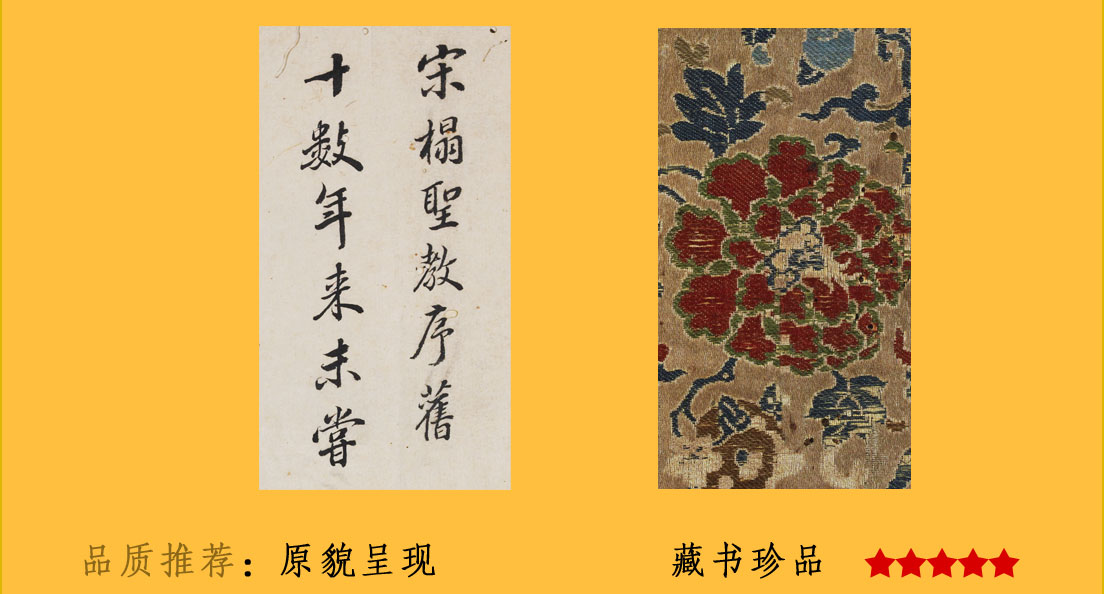 宋榻聖教序舊
十数年来未嘗
品质推荐：原貌呈现
藏书珍品